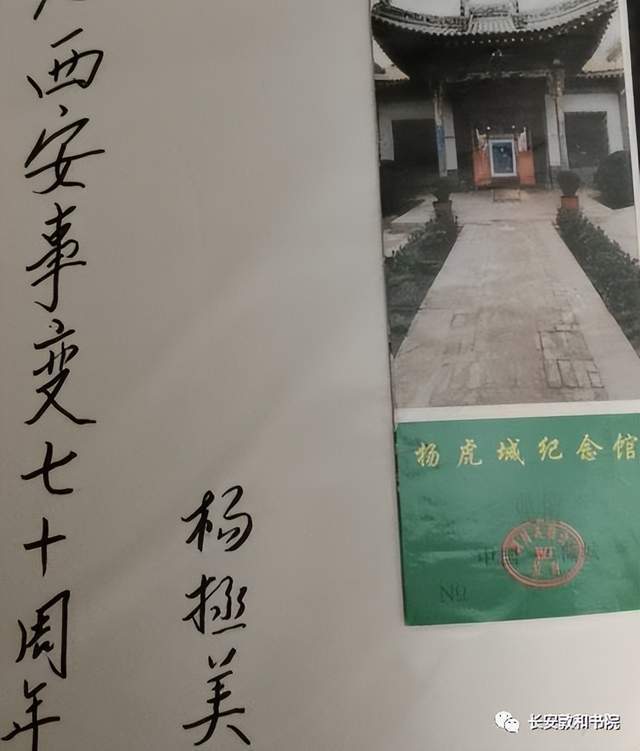 西安事变七十周年
杨拯美
杨虎城纪念馆
中国
No
长安敦和书院